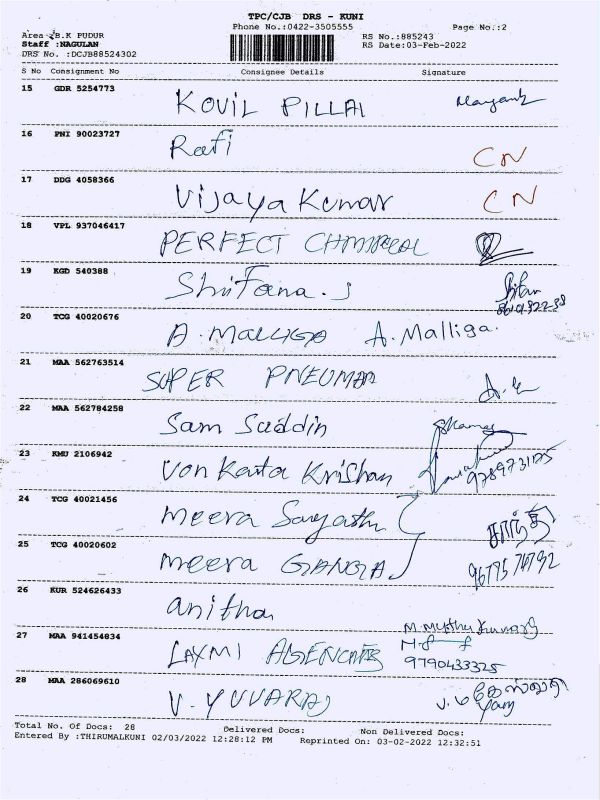 TPC/CJB DRS - KUNI
Phone No.:0422-3505555 Page No.:2
Area :B.K PUDUR RS No.:885243
Staff :NAGULAN RS Date:03-Feb-2022
DRS No. :DCJB88524302
S No Consignment No Consignee Details Signature
15 GDR 5254773 KOVIL PILLAI
16 PNI 90023727 Rafi CN
17 DDG 4058366 Vijaya Kumar CN
18 VPL 937046417 PERFECT
19 KGD 540388 Shifana.J
20 TCG 40020676 A.MALLIGA A.Malliga.
21 MAA 562763514 SUPER PNEUMAR
22 MAA 562784258 Sam Suddin
23 KMU 2106942 Von Kata Krishan 9789731175
24 TCG 40021456 Meera சாந்தி
25 TCG 40020602 Meera GANGA
26 KUR 524626433 anitha
27 MAA 941454834 LAXMI AGENCIES 9790433325
28 MAA 286069610 V.YUVARAJ
Total No. Of Docs: 28 Delivered Docs: Non Delivered Docs:
Entered By :THIRUMALKUNI 02/03/2022 12:28:12 PM Reprinted On: 03-02-2022 12:32:51